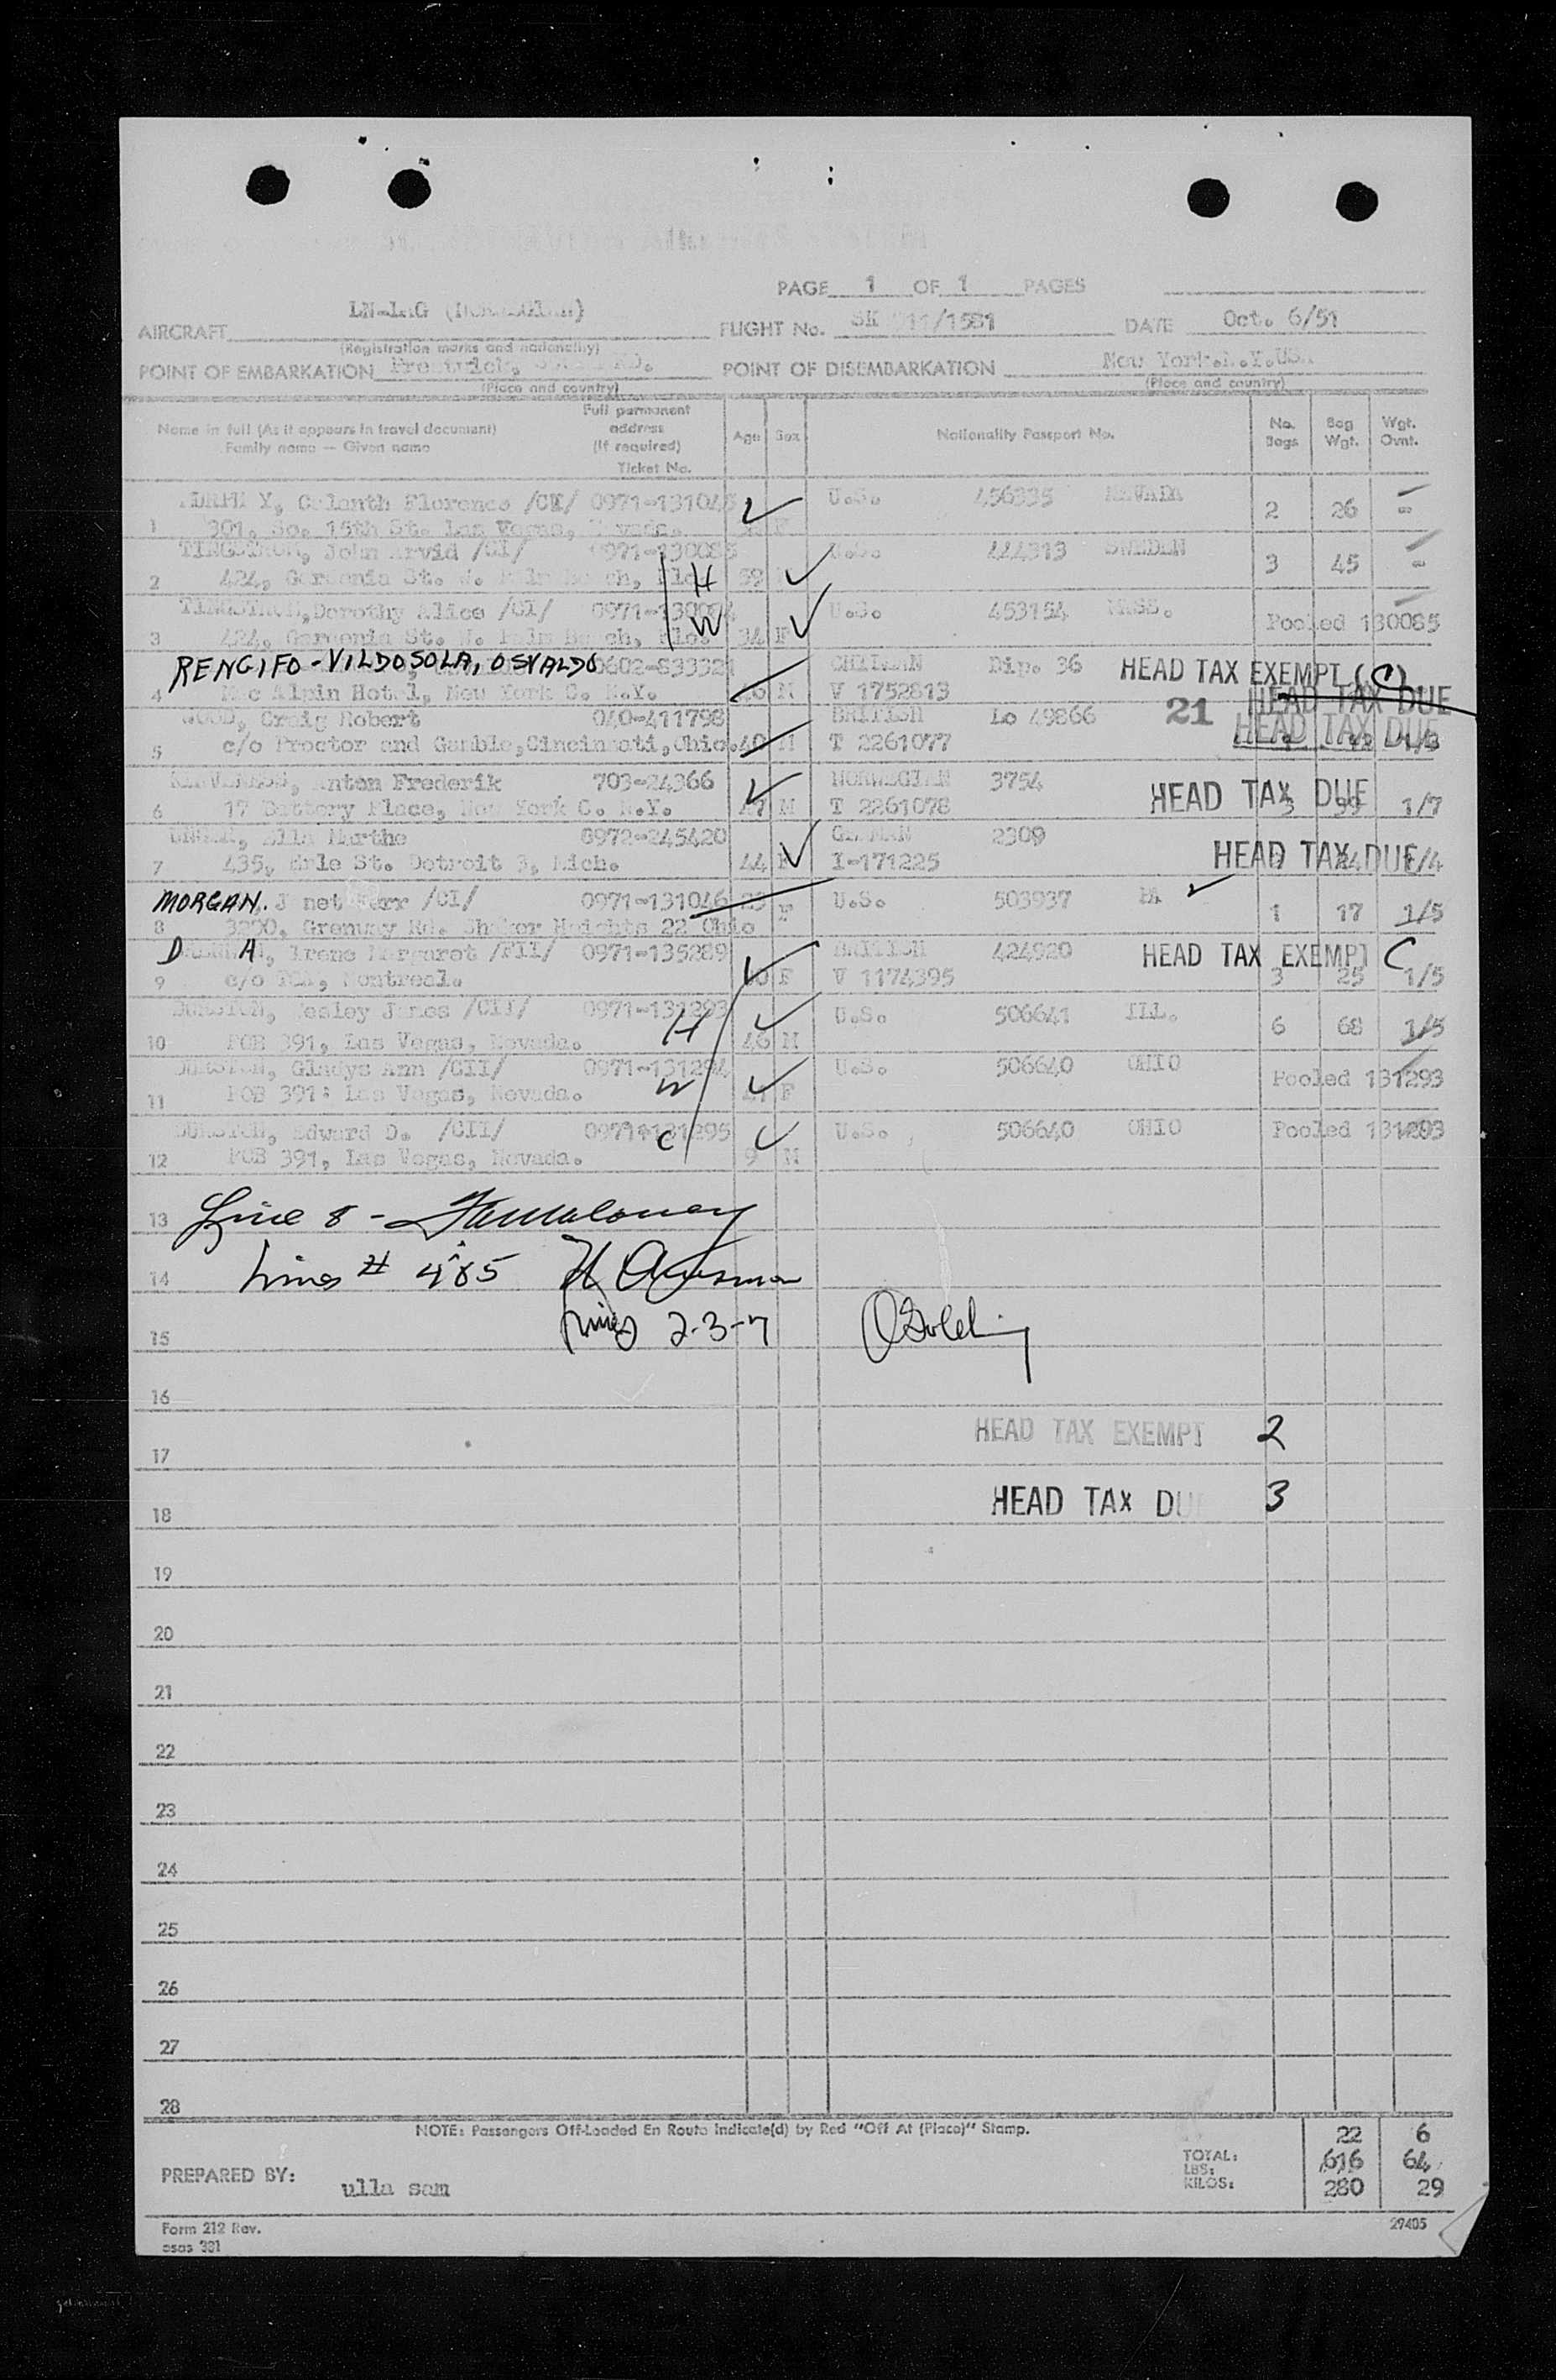 PAGE 1 OF 1 PAGES
AIRCRAFT FLIGHT No. SK 911/1581 DATE Oct. 6/51
(Registration marks and nationality)
POINT OF EMBARKATION POINT OF DISEMBARKATION New York.N.Y.USA
(Place and country) (Place and country)
Name in full (As it appears in travel document)
Family name — Given name
Full permanent
address
(If required)
Ticket No.
Age Sex Nationality Passport No. No. Bags Bag Wgt. Wgt. Ovnt.
Florence 0971-131045 U.S. 456335 NEVADA
1 301, So. 15th St. Las Vegas, Nevada. F 2 26 -
John Arvid /CI/ 0971-130085 U.S. 444313 SWEDEN
2 424, Gardenia St. W. Palm Beach, Fla. H 59 3 45 -
Dorothy Alice /CI/ U.S. 453154 MASS.
3 424, Gardenia St. W. Palm Beach, Fla. W 34 F Pooled 130085
RENGIFO-VILDOSOLA, OSVALDO 0602-833321 CHILEAN Dip. 36 HEAD TAX EXEMPT (C)
4 Mc Alpin Hotel, New York C. N.Y. 46 M V 1752813 HEAD TAX DUE
WOOD, Craig Robert 040-411798 BRITISH Lo 49866 21 HEAD TAX DUE
5 c/o Proctor and Gamble,Cincinnati,Ohio. 40 M T 2261077 1/3
Anton Frederik 703-24366 NORWEGIAN 3754 HEAD TAX DUE
6 17 Battery Place, New York C. N.Y. 47 M T 2261078 3 99 1/7
Ella Marthe 0972-245420 GERMAN 2309 HEAD TAX DUE
7 435, St. Detroit 3, Mich. 44 F I-171225 1/4
MORGAN. Janet /CI/ 0971-131046 23 F U.S. 503937
8 Grenway Rd. Shaker Heights 22 Ohio 1 17 1/5
Irene Margaret /FII/ 0971-135289 BRITISH 424920 HEAD TAX EXEMPT C
9 Montreal. F V 1174395 3 25 1/5
Wesley James /CII/ 0971-131293 U.S. 506641 ILL.
10 POB 391, Las Vegas, Nevada. H 46 M 6 68 1/5
Gladys Ann /CII/ 0971-131294 U.S. 506640 OHIO
11 POB 391: Las Vegas, Nevada. W F Pooled 131293
Edward D. /CII/ 0971-131295 C U.S. 506640 OHIO Pooled 131293
12 POB 391, Las Vegas, Nevada. 9 M
13 Line 8 -
14 Lines # 4&5
15 Lines 2-3-7
16
HEAD TAX EXEMPT 2
17
HEAD TAX DUE 3
18
19
20
21
22
23
24
25
26
27
28
NOTE: Passengers Off-Loaded En Route Indicate(d) by Red "Off At (Place)" Stamp.
22 6
TOTAL:
LBS: 616 64
KILOS: 280 29
PREPARED BY: ulla sam
Form 212 Rev.
osas 381
29405